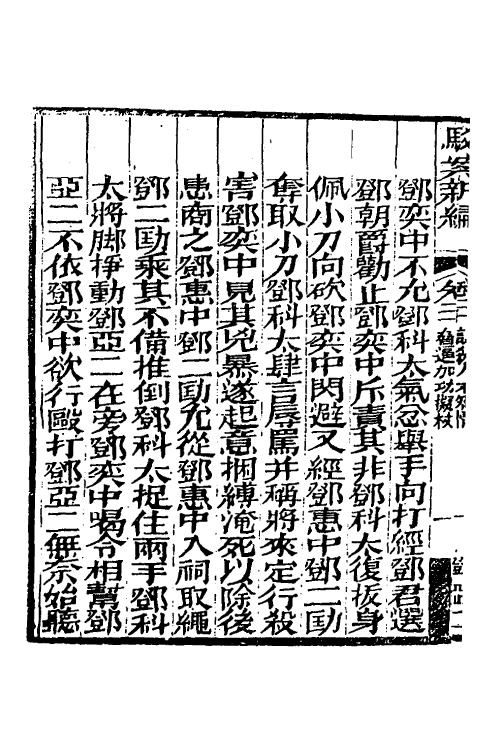 駁案新編
鄧奕中不允鄧科太氣忿舉手向打經鄧君選
鄧朝爵勸止鄧奕中斥責其非鄧科太復拔身
佩小刀向砍鄧奕中閃避又經鄧惠中鄧二㔜
奪取小刀鄧科太肆言辱罵并稱將來定行殺
害鄧奕中見其兇暴遂起意捆縛淹死以除後
患商之鄧惠中鄧二㔜允從鄧惠中入祠取繩
鄧二㔜乘其不備推倒鄧科太捉住兩手鄧科
太將脚掙動鄧亞二在旁鄧奕中喝令相幫鄧
亞二不依鄧奕中欲行毆打鄧亞二無奈始聽